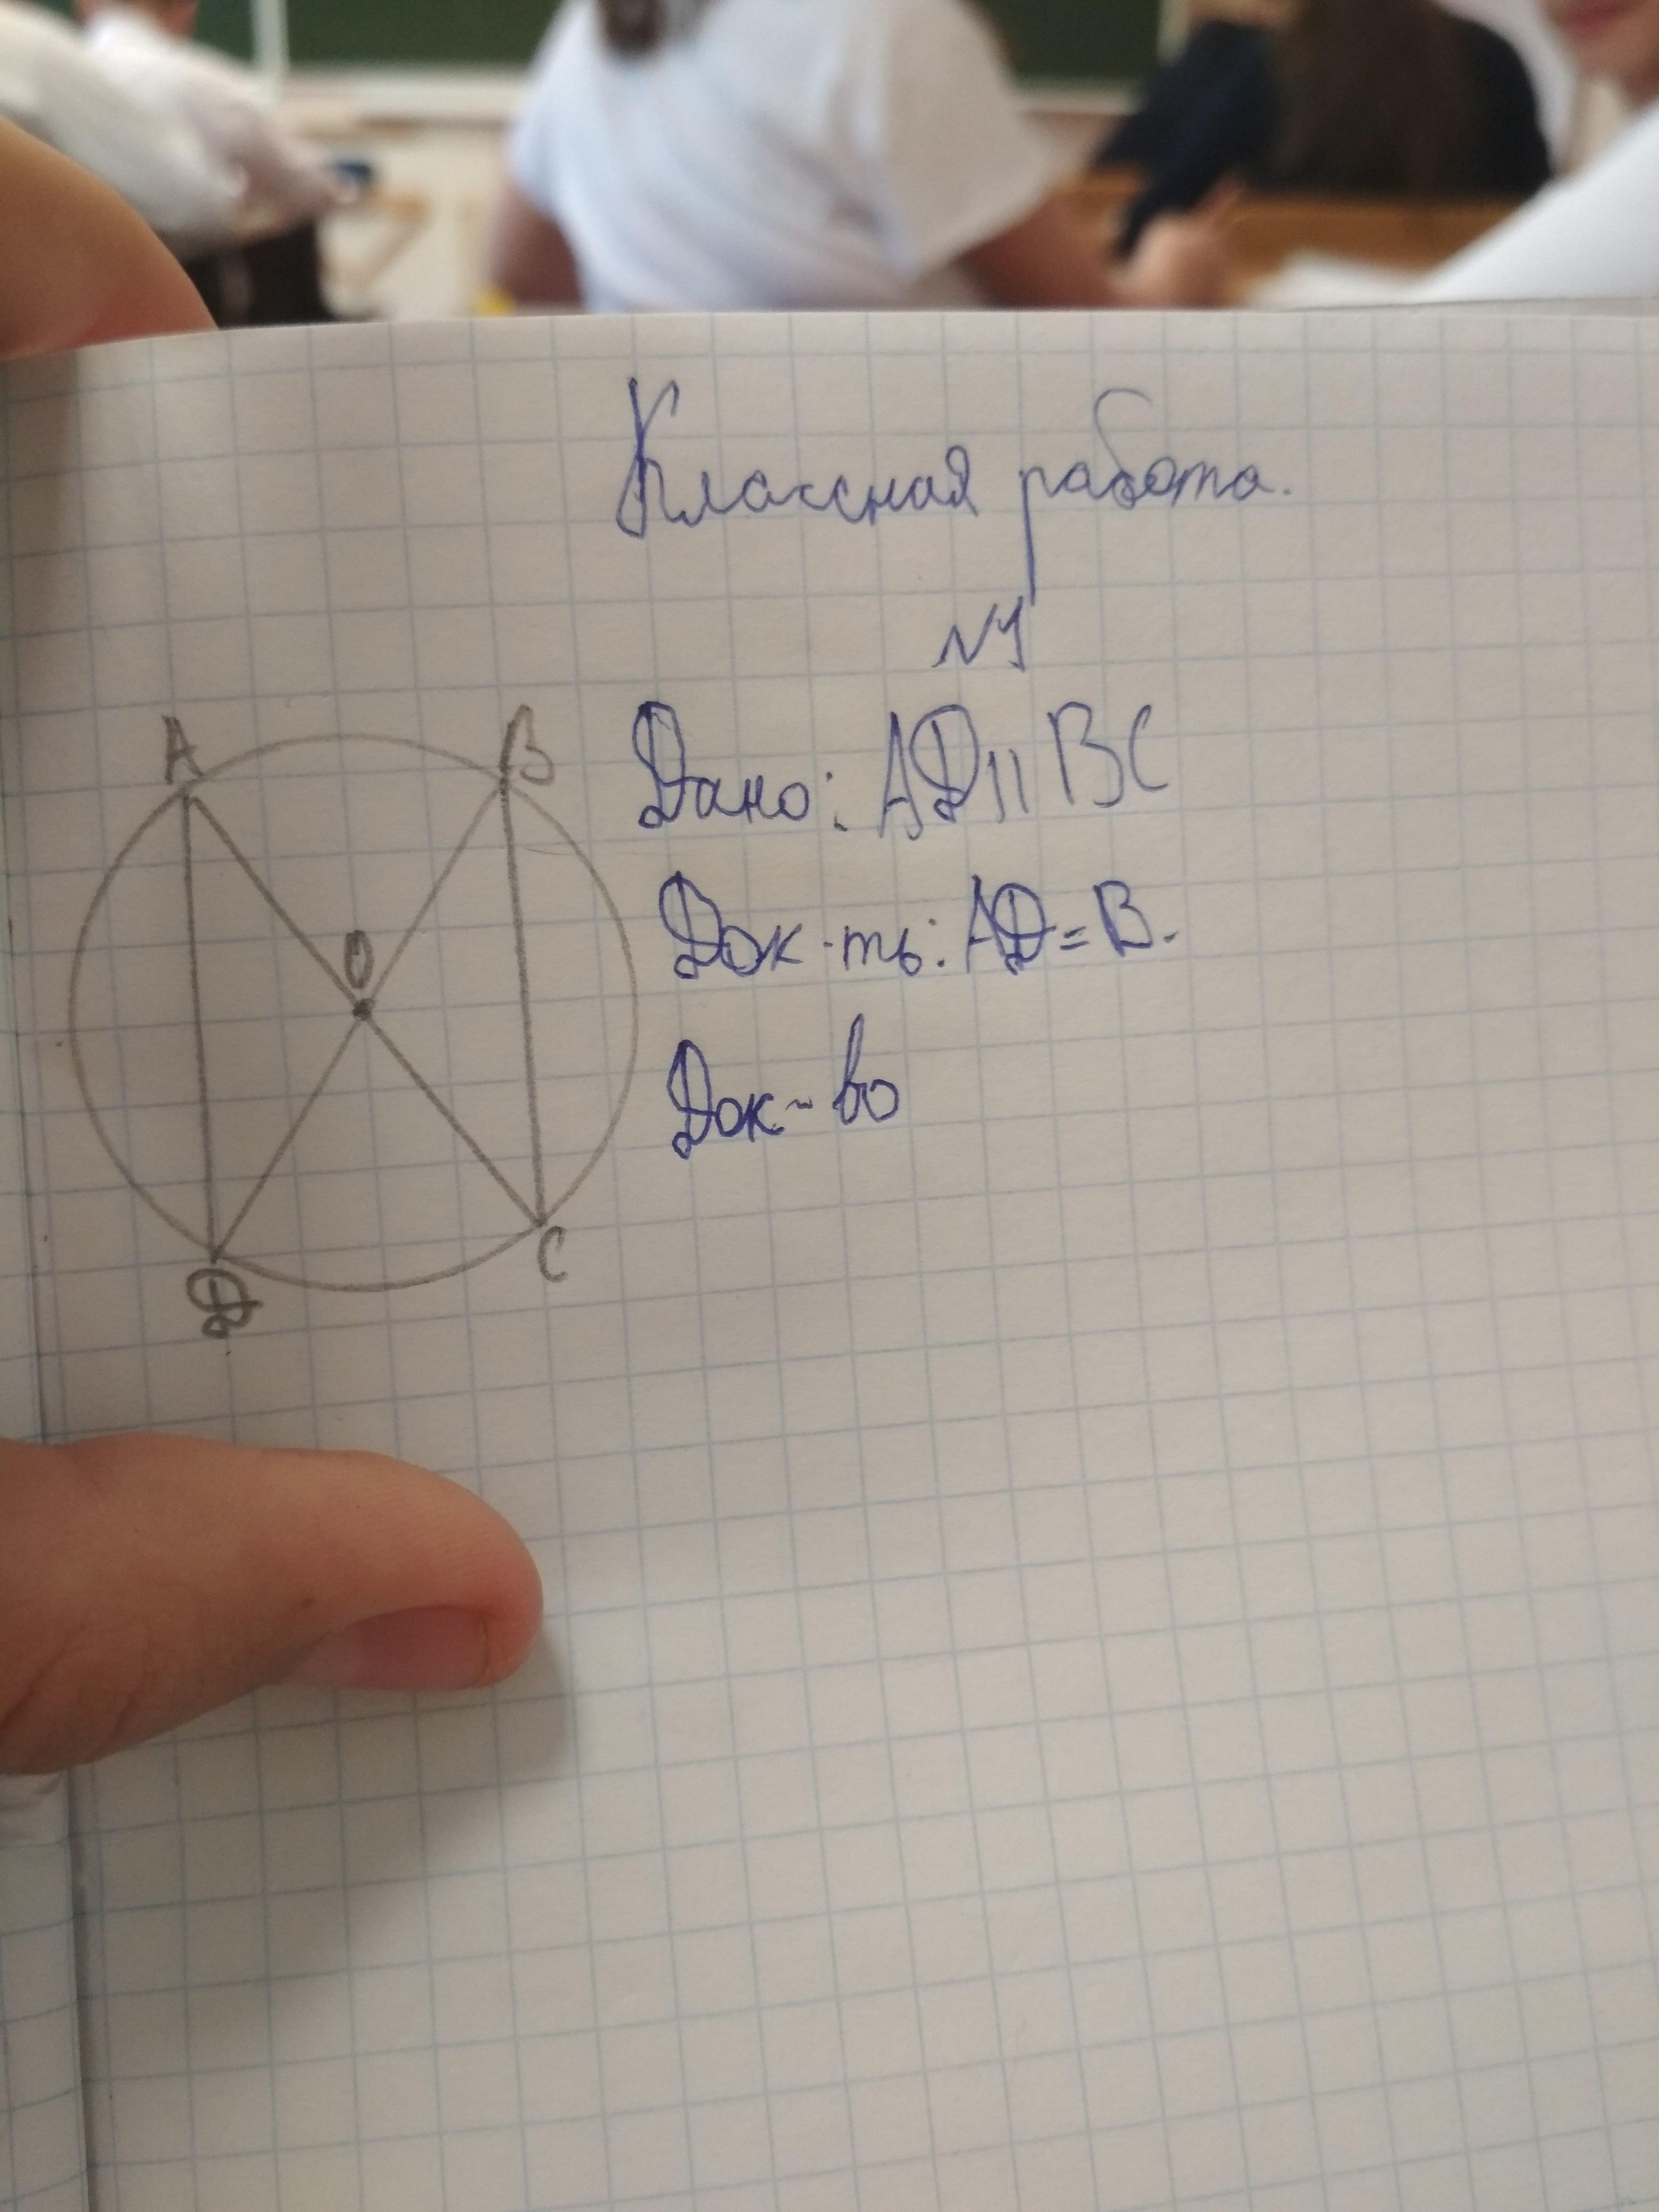 Классная работа.
№1
Дано: AD || BC
Док-ть: AD = B.
Док-во
A
B
O
D
C